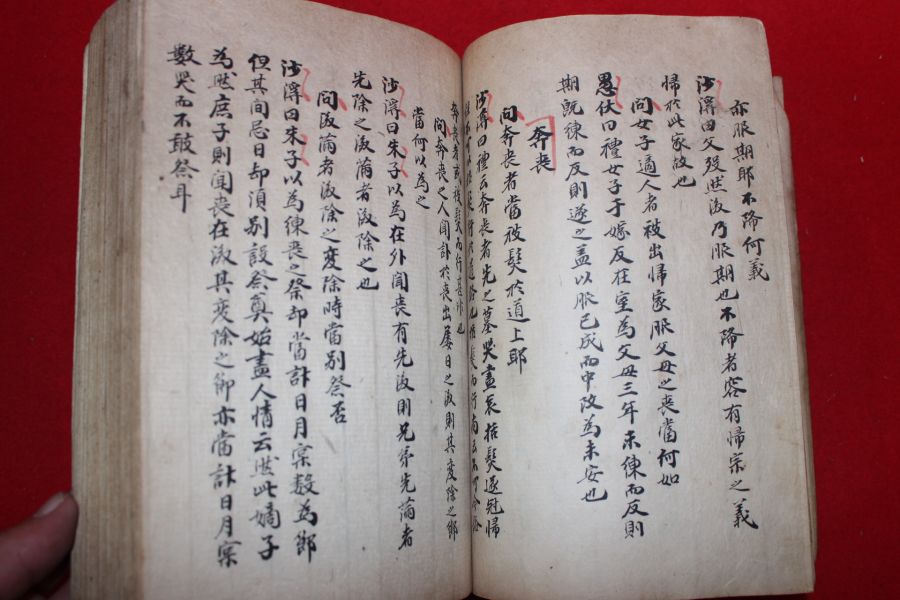 亦服期耶不降何義
沙溪曰父歿然後乃服期也不降者容有歸宗之義
歸於此家故也
問女子適人者被出歸家服父母之喪當何如
愚伏曰禮女子子嫁反在室爲父母三年未練而反則
期旣練而反則遂之盖以服已成而中改爲未安也
奔喪
問奔喪者當被髮於道上耶
沙溪曰禮云奔喪者先之墓哭盡哀括髮遂冠歸
問奔喪之人聞訃於喪出屢日之後則其変除之節
當何以爲之
沙溪曰朱子以爲在外聞喪有先後則兄弟先滿者
先除之後滿者後除之也
問後滿者後除之変除時當別祭否
沙溪曰朱子以爲練喪之祭却當計日月実数爲節
但其间忌日却須別設祭奠始盡人情云然此嫡子
爲然庶子則聞喪在後其変除之節亦當計日月実
數哭而不敢祭耳